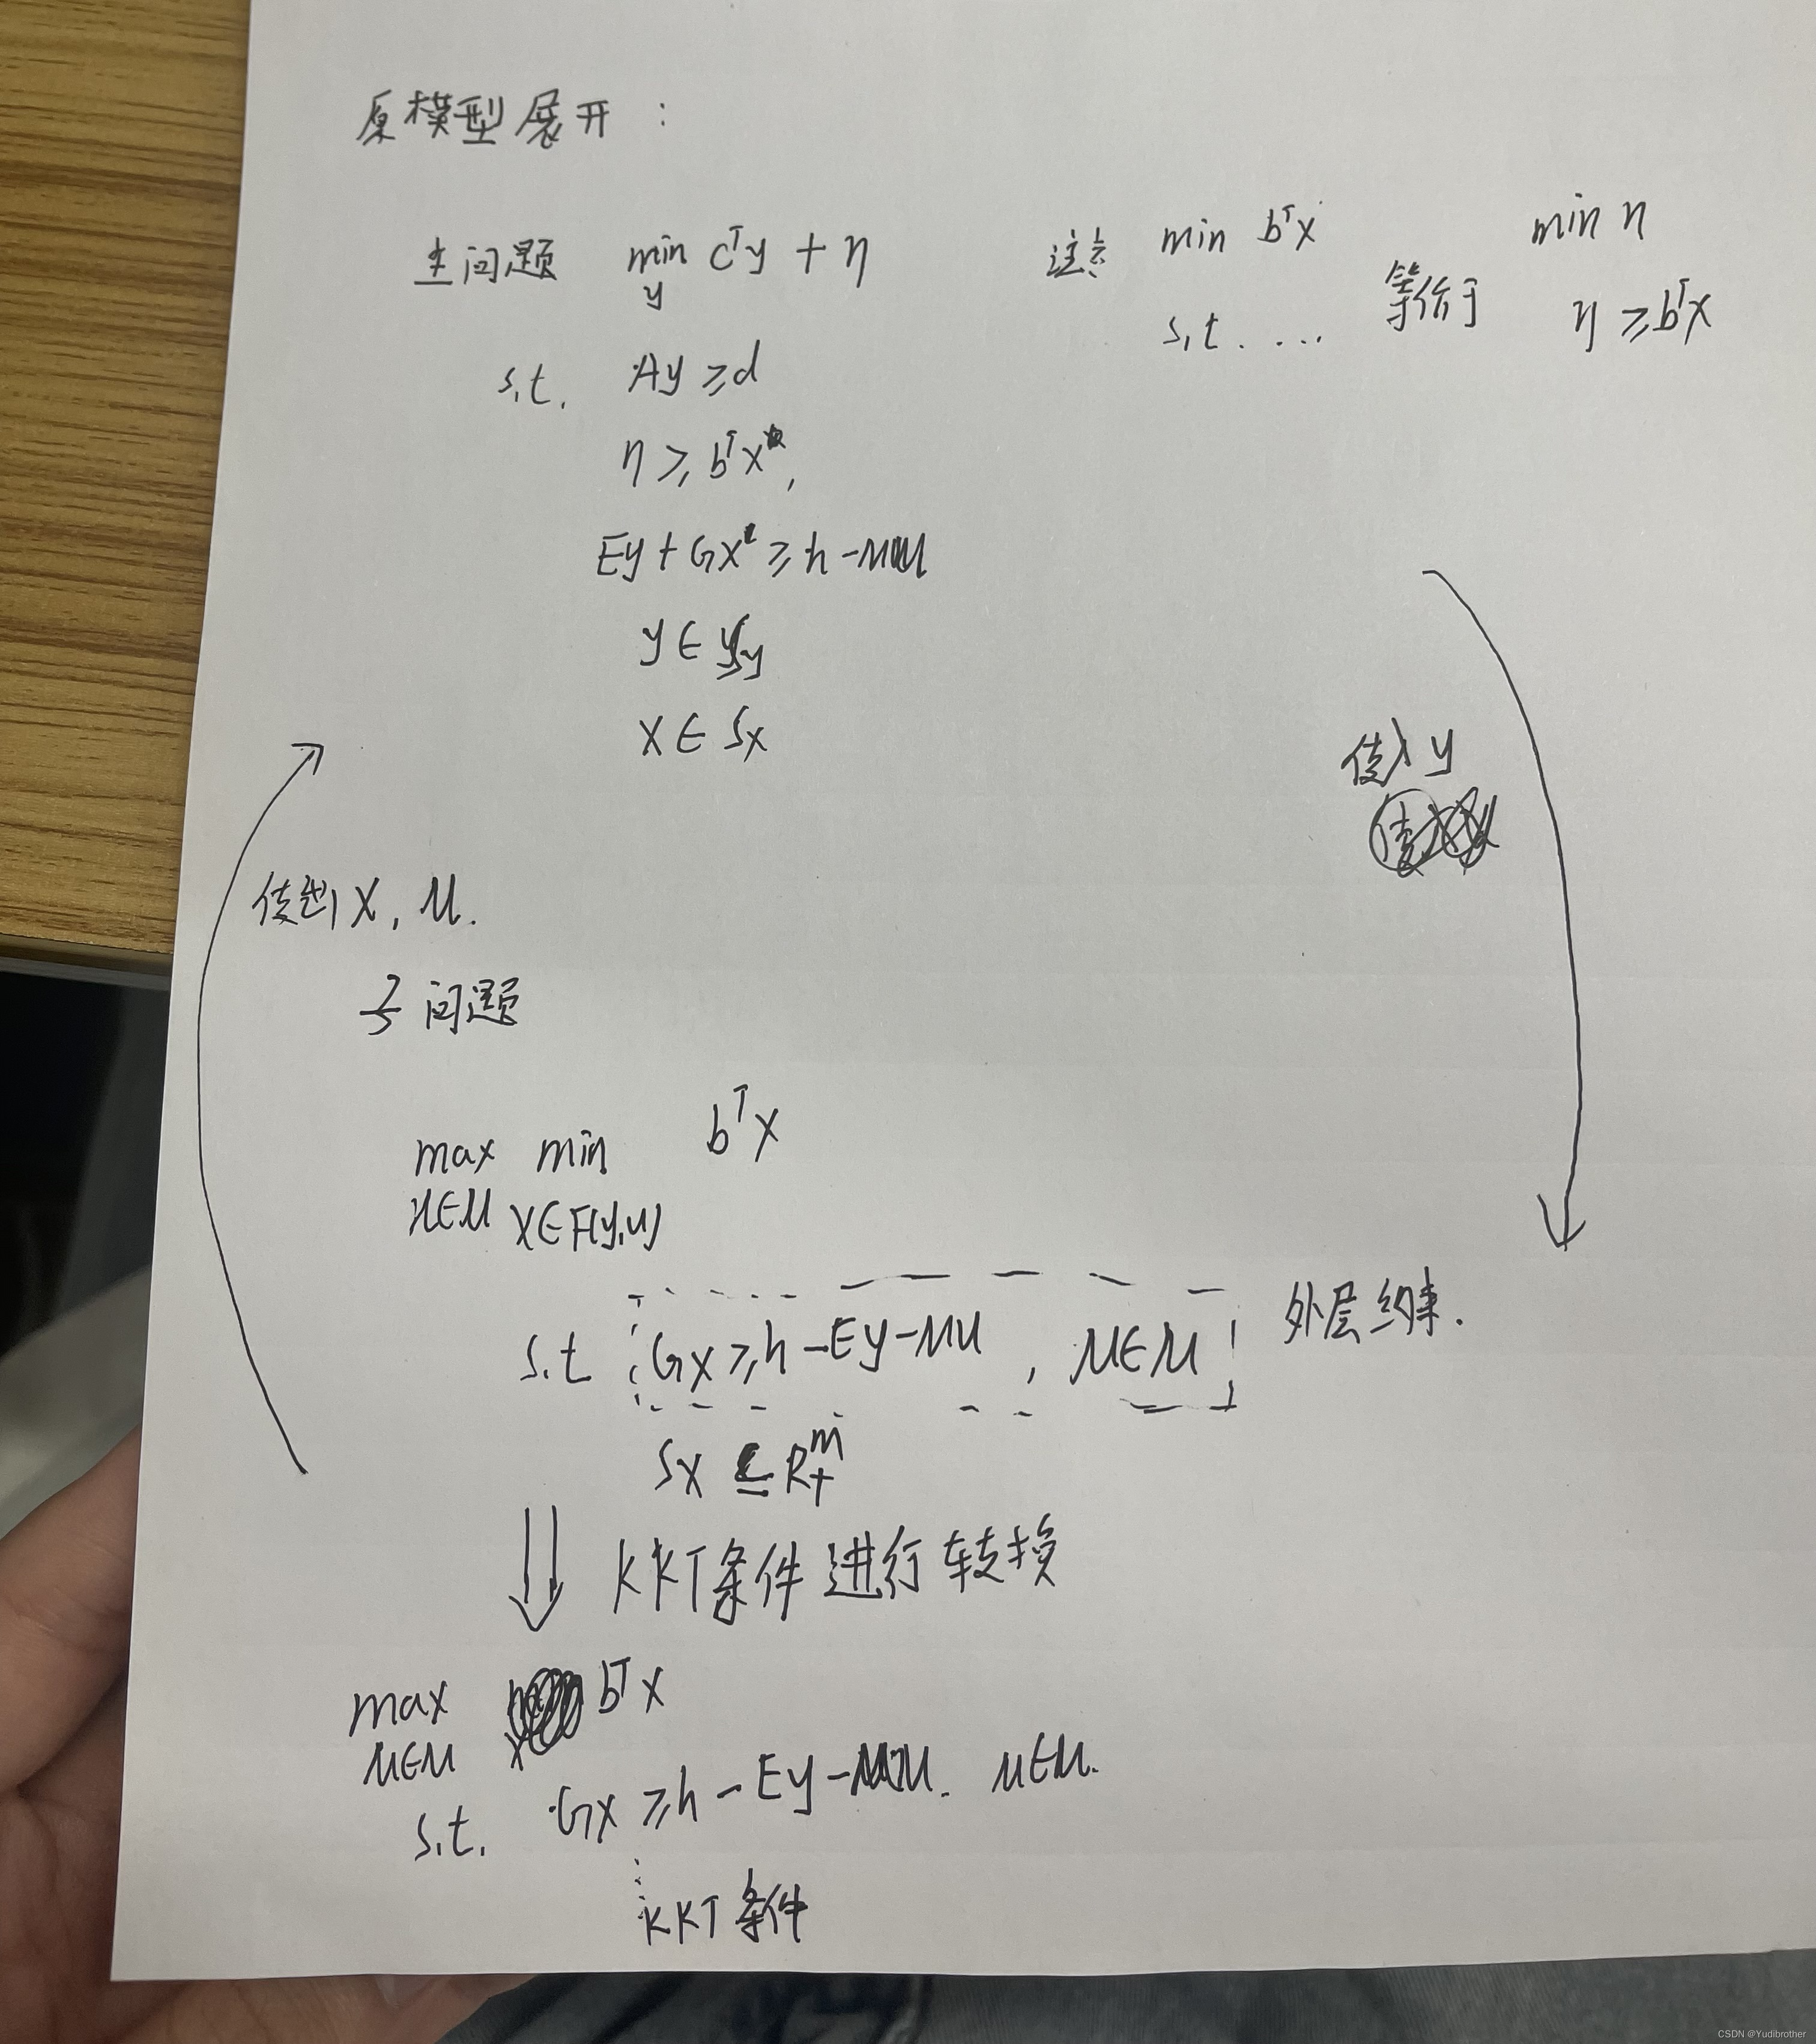 原模型展开：
主问题 min cᵀy + η 注意 min bᵀx 等价于 min η
y
s.t. Ay ≥ d s.t. ... η ≥ bᵀx
η ≥ bᵀx
Ey + Gx ≥ h - Mu
y ∈ Sy
x ∈ Sx
传入 y
传出 x, u.
子问题
max min bᵀx
u∈U x∈F(y,u)
s.t Gx ≥ h - Ey - Mu , u∈U 外层约束.
Sx ⊆ R₊ᵐ
KKT条件进行转换
max bᵀx
u∈U
s.t. Gx ≥ h - Ey - Mu. u∈U.
KKT条件
CSDN @Yudibrother